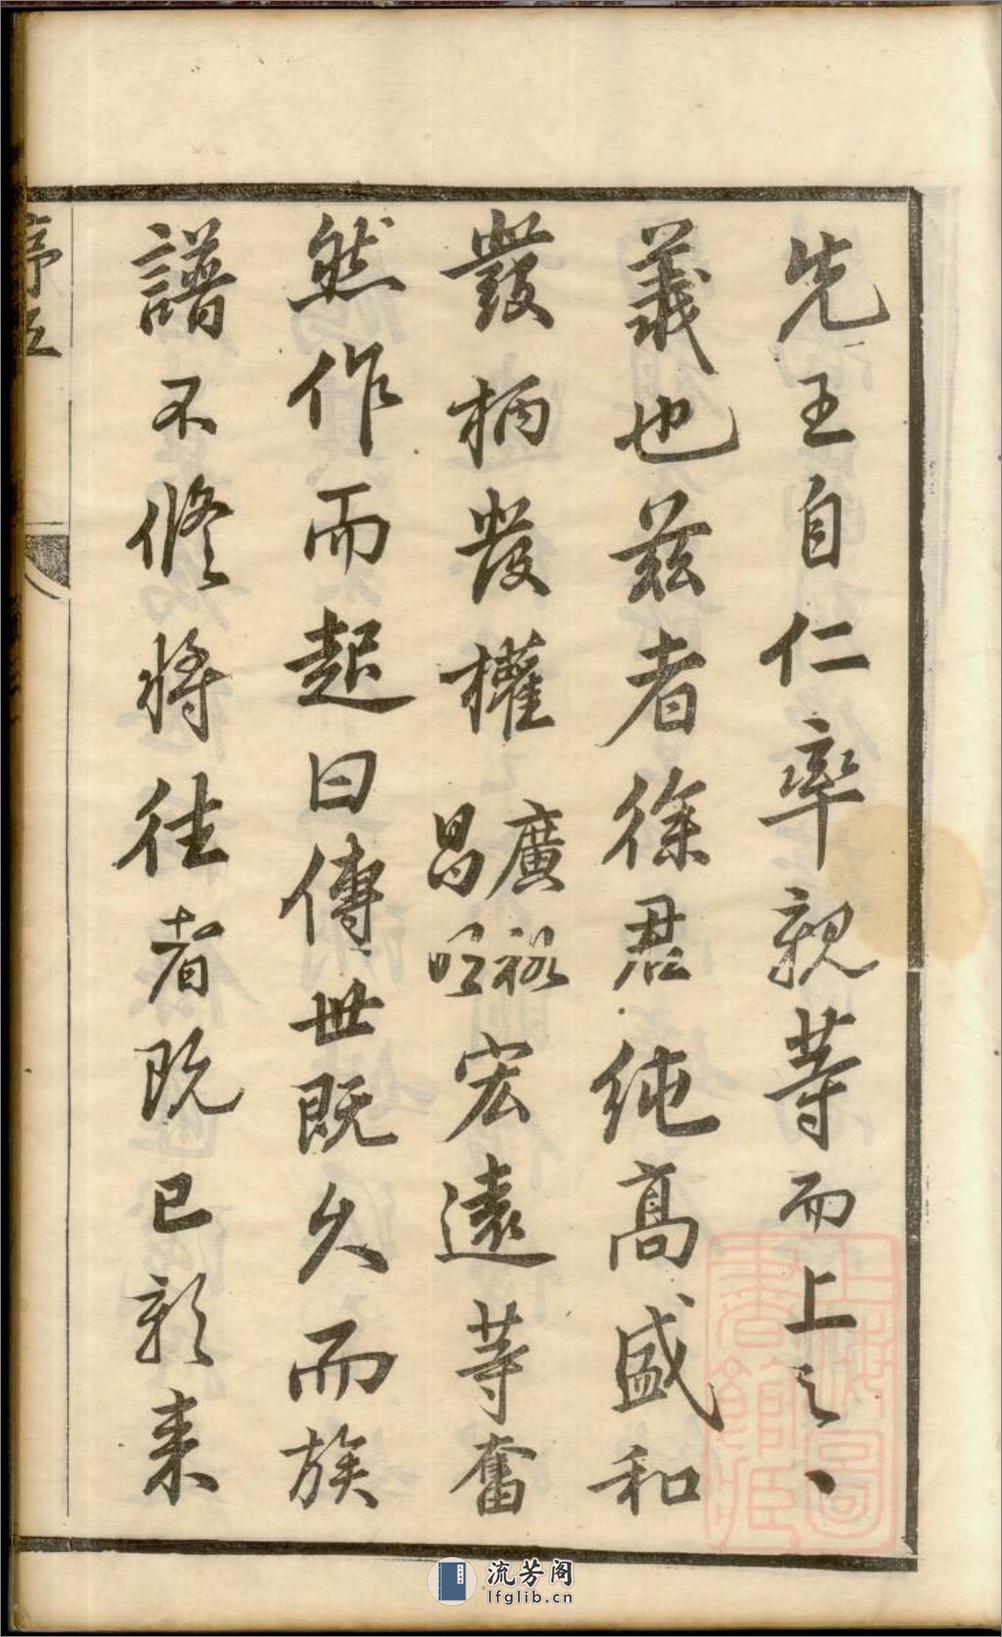 先王自仁率親等而上之丶
義也兹者徐君純高盛和
發柄發權廣裕昌旺宏遠等奮
然作而起曰傳世既久而族
譜不修將往者既已彰来
序
上海圖書館藏
流芳阁
lfglib.cn